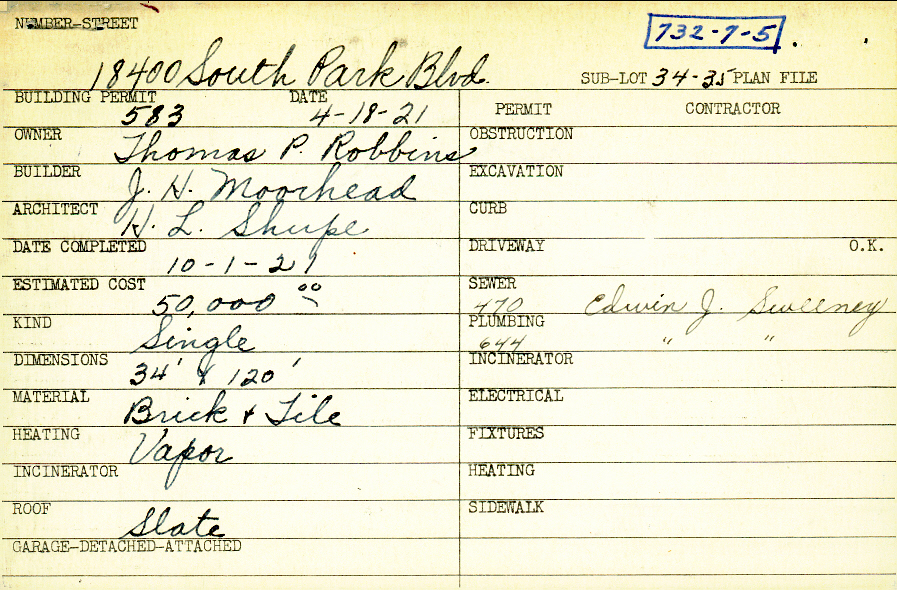 NUMBER-STREET
732-7-5
18400 South Park Blvd.
SUB-LOT 34-35 PLAN FILE
BUILDING PERMIT 583 DATE 4-18-21
PERMIT CONTRACTOR
OWNER Thomas P. Robbins
OBSTRUCTION
BUILDER J. H. Moorhead
EXCAVATION
ARCHITECT H. L. Shupe
CURB
DATE COMPLETED 10-1-21
DRIVEWAY O.K.
ESTIMATED COST 50,000 00
SEWER 470 Edwin J. Sweeney
KIND Single
PLUMBING 644 " "
DIMENSIONS 34' x 120'
INCINERATOR
MATERIAL Brick & Tile
ELECTRICAL
HEATING Vapor
FIXTURES
INCINERATOR
HEATING
ROOF Slate
SIDEWALK
GARAGE-DETACHED-ATTACHED